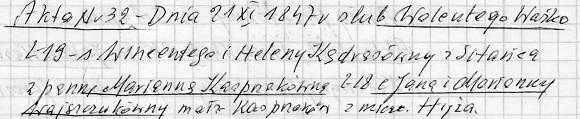 Akta Nr 32 - Dnia 21 XI 1847 r ślub Walentego Waśko
L-19 - s. Wincentego i Heleny Kędrasówny z Sitańca
z panną Marianną Kaspraków­ną L-18 c Jana i Marianny
małż Kaspraków z miesz. Hyża.